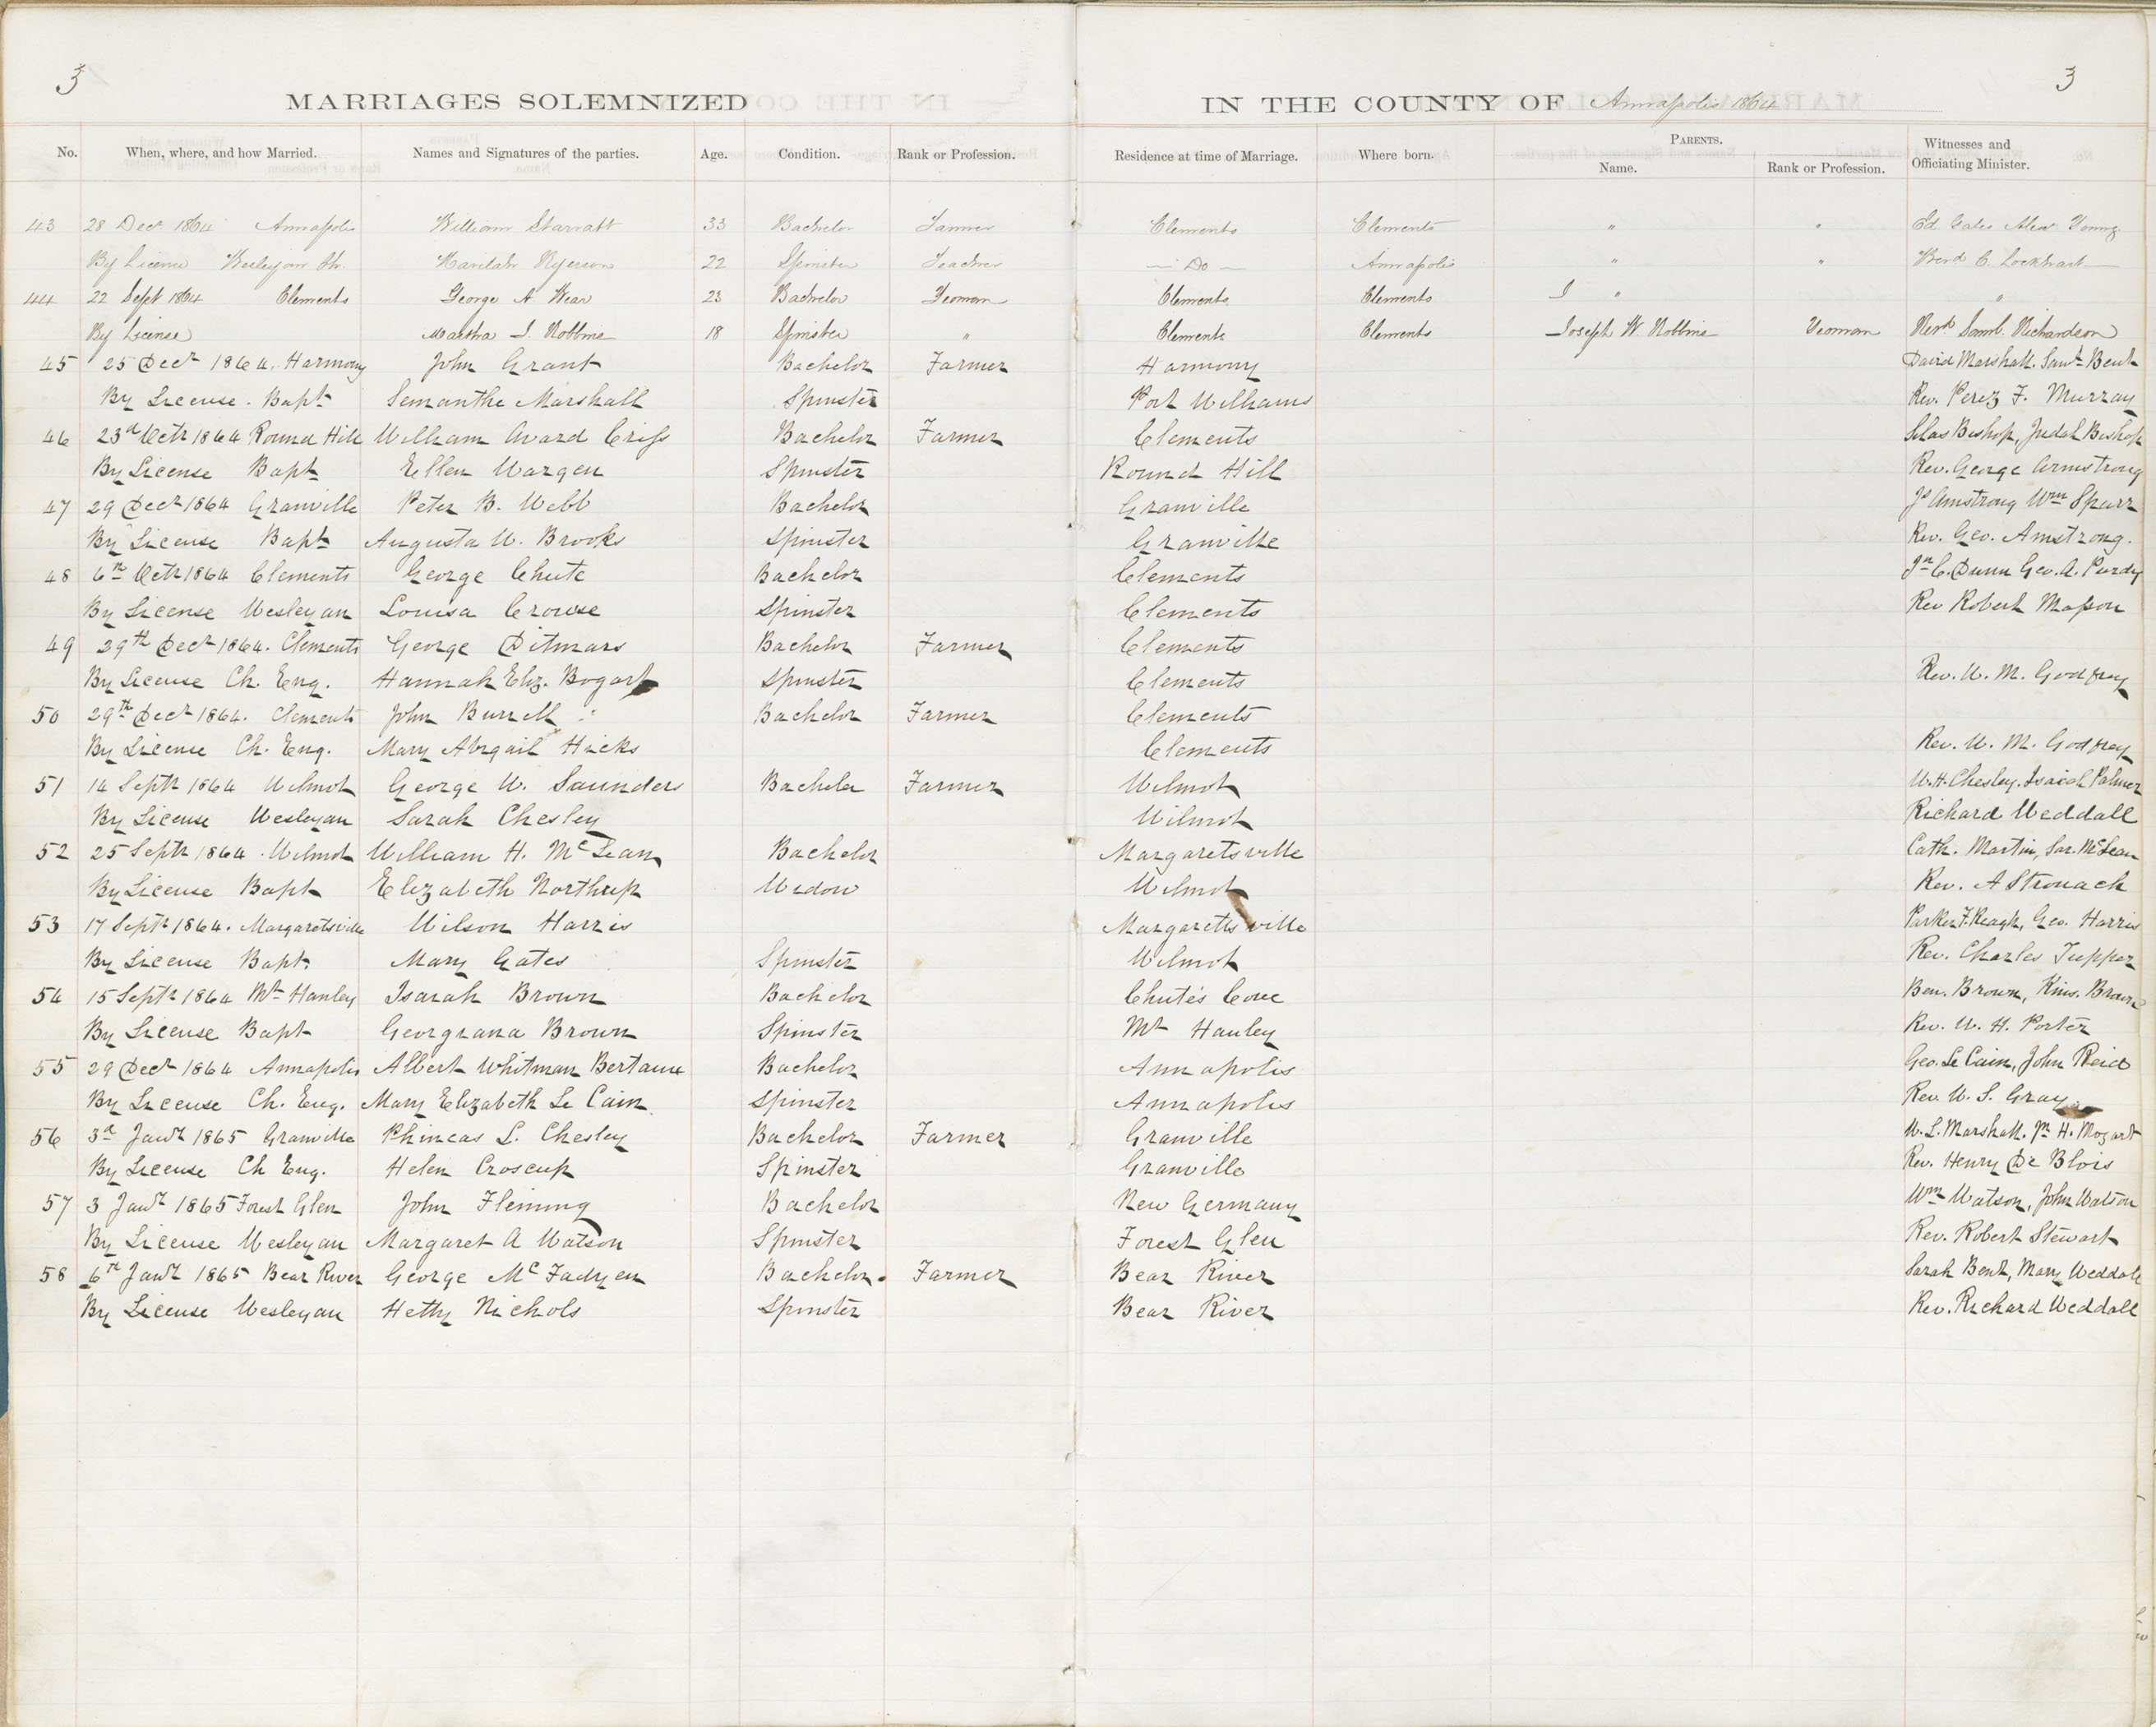 3 3
MARRIAGES SOLEMNIZED IN THE COUNTY OF Annapolis 1864
No. When, where, and how Married. Names and Signatures of the parties. Age. Condition. Rank or Profession. Residence at time of Marriage. Where born. PARENTS. Name. Rank or Profession. Witnesses and Officiating Minister.
43 28 Decr 1864 Annapolis William Starratt 33 Bachelor Farmer Clements Clements " " Ed. Gates Alex Young
By License Wesleyan Ch. Ryerson 22 Spinster Teacher — Do — Annapolis " " Revd C. Lockhart
44 22 Sept 1864 Clements George A. Wear 23 Bachelor Yeoman Clements Clements " "
By License Martha J. Robbins 18 Spinster " Clements Clements Joseph W Robbins Yeoman Revd Saml. Richardson
45 25 Decr 1864. Harmony John Grant Bachelor Farmer Harmony David Marshall. Saml Bent
By License. Bapt Semanthe Marshall Spinster Port Williams Rev. Perez F. Murray
46 23d Octr 1864 Round Hill William Avard Criss Bachelor Farmer Clements Silas Bishop, Judah Bishop
By License Bapt Ellen Wargen Spinster Round Hill Rev. George Armstrong
47 29 Decr 1864 Granville Peter B. Webb Bachelor Granville Js Amstrong Wm Spurr
By License Bapt Augusta W. Brooks Spinster Granville Rev. Geo. Amstrong.
48 6th Octr 1864 Clements George Chute Bachelor Clements Jn C. Dunn Geo. A. Purdy
By License Wesleyan Louisa Crouse Spinster Clements Rev Robert Masson
49 29th Decr 1864. Clements George Ditmars Bachelor Farmer Clements
By License Ch. Eng. Hannah Eliz. Bogart Spinster Clements Rev. W. M. Godfrey
50 29th Decr 1864. Clements John Burrell Bachelor Farmer Clements
By License Ch. Eng. Mary Abigail Hicks Clements Rev. W. M. Godfrey
51 14 Septr 1864 Wilmot George W. Saunders Bachelor Farmer Wilmot W. H. Chesley. Isaiah Palmer
By License Wesleyan Sarah Chesley Wilmot Richard Weddall
52 25 Septr 1864. Wilmot William H. McLean Bachelor Margaretsville Cath. Martin, Sar. McLean
By License Bapt Elizabeth Northup Widow Wilmot Rev. A Stronach
53 17 Septr 1864. Margaretsville Wilson Harris Margarettsville Parker F. Reagh, Geo. Harris
By License Bapt. Mary Gates Spinster Wilmot Rev. Charles Tupper
54 15 Septr 1864 Mt Hanley Isaiah Brown Bachelor Chute's Cove Ben. Brown, Kins. Brown
By License Bapt Georgiana Brown Spinster Mt Hanley Rev. W. H. Porter
55 29 Decr 1864 Annapolis Albert Whitman Bertaux Bachelor Annapolis Geo. Le Cain, John Reid
By License Ch. Eng. Mary Elizabeth Le Cain Spinster Annapolis Rev. W. S. Gray
56 3d Jany 1865 Granville Phineas L. Chesley Bachelor Farmer Granville W. L. Marshall. H. Mozart
By License Ch Eng. Helen Croscup Spinster Granville Rev. Henry De Blois
57 3 Jany 1865 Forest Glen John Fleming Bachelor New Germany Wm Watson, John Watson
By License Wesleyan Margaret A Watson Spinster Forest Glen Rev. Robert Stewart
58 6th Jany 1865 Bear River George McFadyen Bachelor. Farmer Bear River Sarah Bent, Mary Weddall
By License Wesleyan Hetty Nichols Spinster Bear River Rev. Richard Weddall